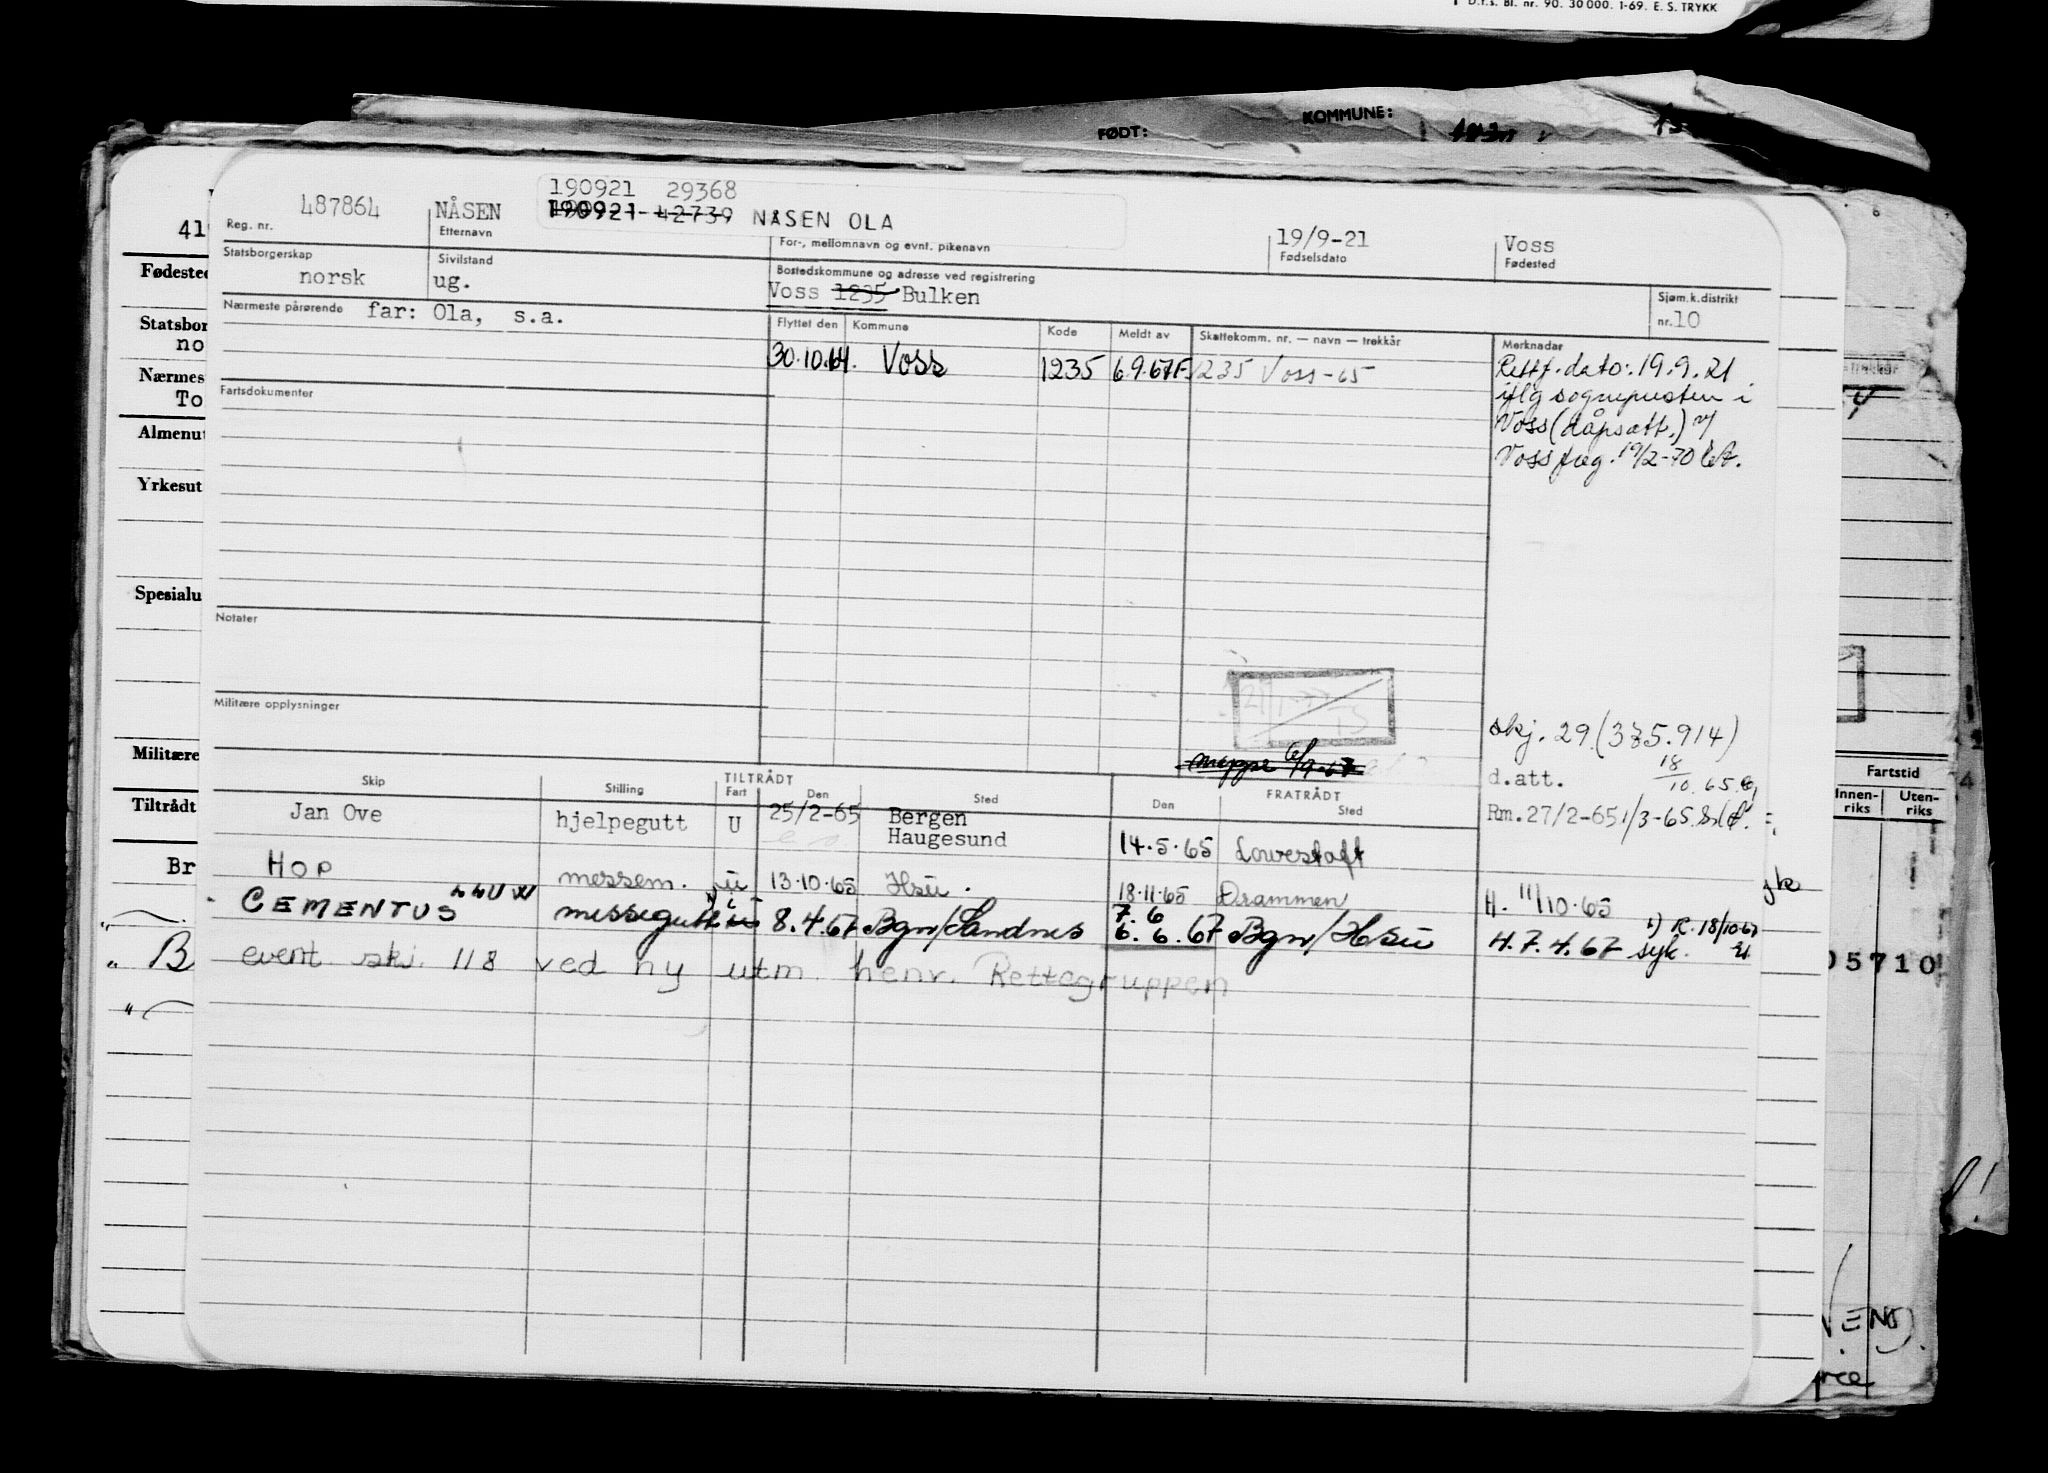 D.f.s. Bl. nr. 90. 30 000. 1-69. E. S. TRYKK
FØDT:
KOMMUNE:
190921 29368
190921-42739 NÅSEN OLA
487864 NÅSEN 19/9-21 Voss
Reg. nr. Etternavn For-, mellomnavn og evnt. pikenavn Fødselsdato Fødested
41
Statsborgerskap Sivilstand Bostedskommune og adresse ved registrering
norsk ug. Voss 1235 Bulken
Sjøm.k.distrikt
nr. 10
Nærmeste pårørende far: Ola, s.a.
Flyttet den Kommune Kode Meldt av Skattekomm. nr. — navn — trekkår Merknadar
30.10.64. Voss 1235 6.9.67F. 1235 Voss-65
Rettf. dato: 19.9.21
iflg sognepresten i
Voss (dåpsatt.)
Voss freg. 19/2-70
Fartsdokumenter
Notater
Militære opplysninger
skj. 29 (335.914)
mappe 6/9-67
d.att. 18/10.65
Rm. 27/2-65 1/3-65
Skip Stilling TILTRÅDT Fart Den Sted FRATRÅDT Den Sted
Jan Ove hjelpegutt U 25/2-65 Bergen
Haugesund 14.5.65 Lowestoft
HOP messem. U 13.10.65 Hsu. 18.11.65 Drammen H. 11/10.65
CEMENTUS LLUW messegutt 8.4.67 Bgn/Sandnes 7.6
6.6.67 Bgn/Hsu H.7.4.67 1) R. 18/10-67
syk.
event. skj. 118 ved ny utm. henv. Rettegruppen
Fødested
Statsbor
no
Nærmes
To
Almenut
Yrkesut
Spesialu
Militære
Tiltrådt
Br
B
Fartstid
Innen-
riks
Uten-
riks
05710